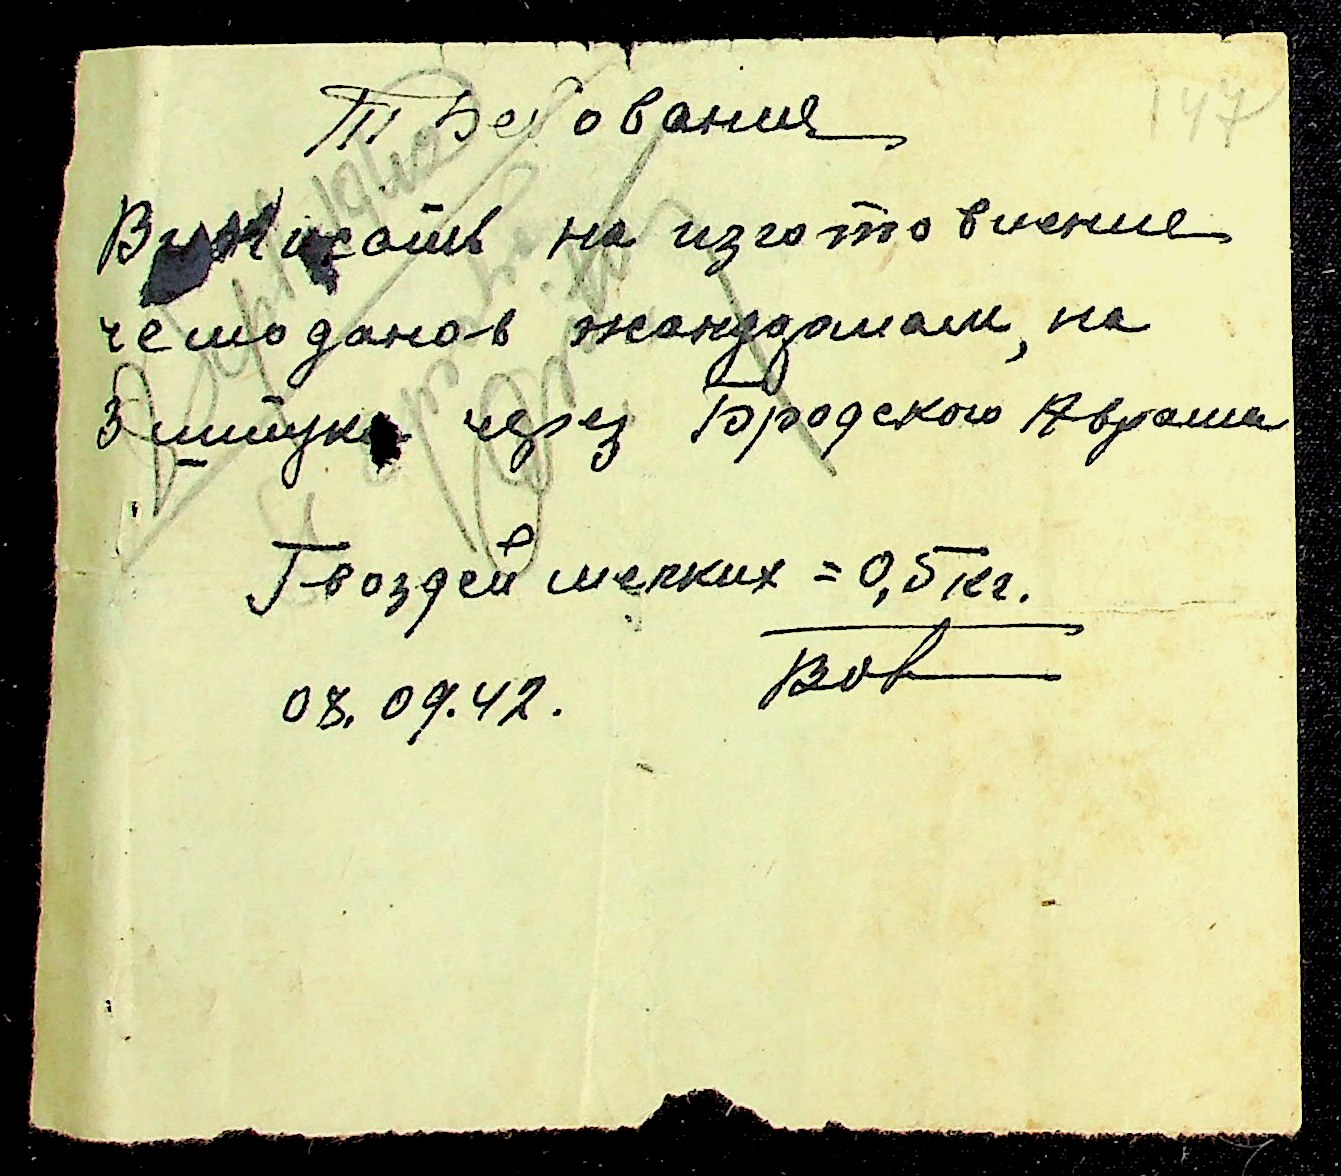 147
Требования
Выписать на изготовление
чемоданов жандармам, на
3 штуки через Бродского Аврама
Гвоздей мелких = 0,5 кг.
08. 09. 42.